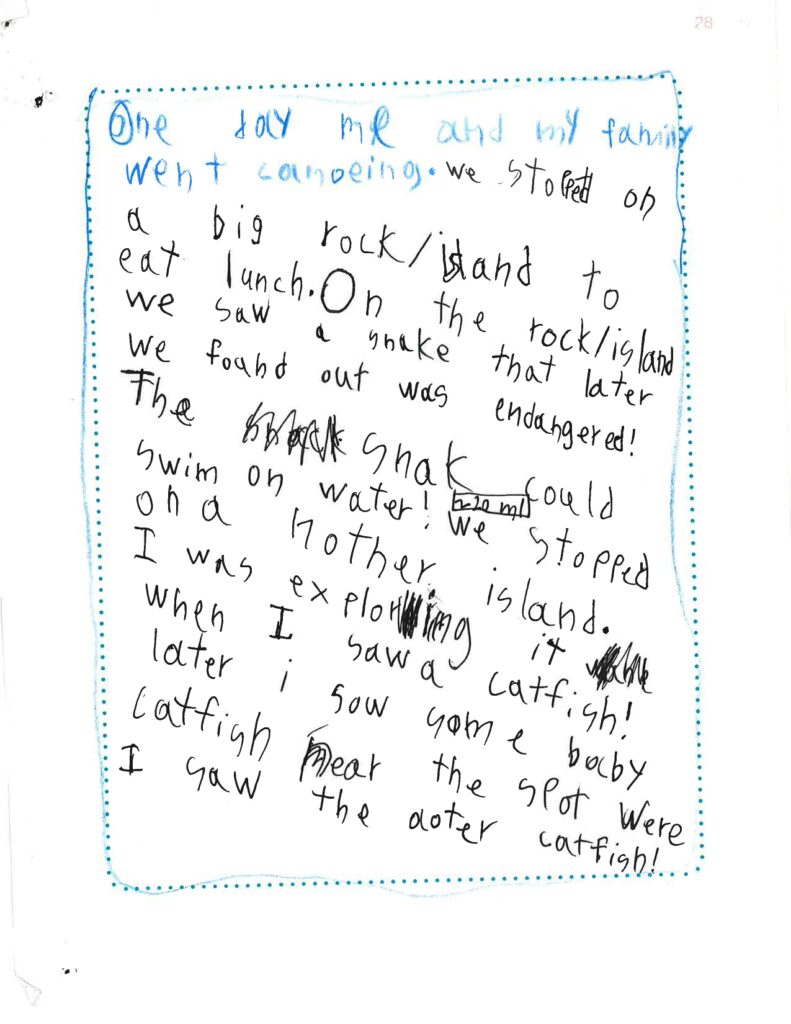 28
One day me and my faminy
went canoeing. we stopped on
a big rock/island to
eat lunch. On the rock/island
we saw a snake that later
we found out was endangered!
The snak could
swim on water! we stopped
on a nother island.
I was exploring it
when I saw a catfish!
later i sow some bacby
catfish near the spot were
I saw the aoter catfish!